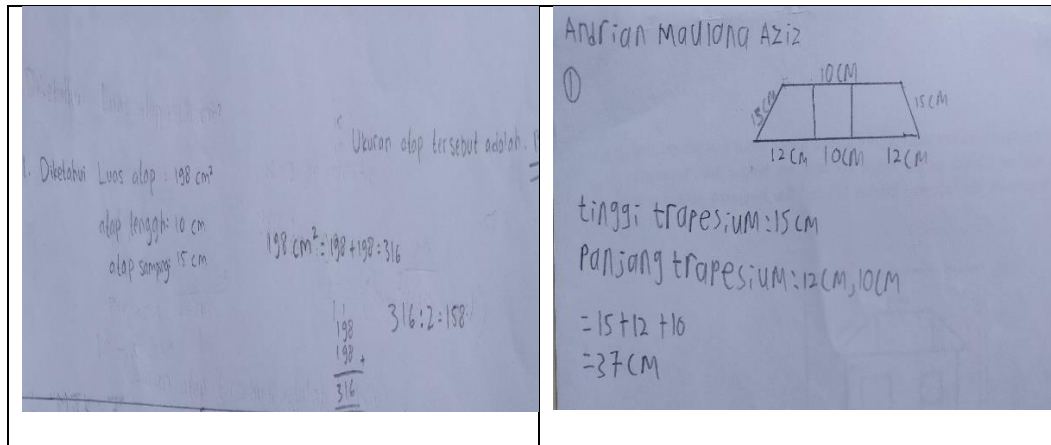 Ukuran atap tersebut adalah.
1. Diketahui Luas atap : 198 cm²
atap tengah: 10 cm
atap samping: 15 cm
198 cm² = 198 + 198 : 316
316 : 2 = 158
198
198 +
316
Andrian Maulana Aziz
①
10 CM
15 CM
15 CM
12 CM 10 CM 12 CM
tinggi trapesiuM : 15 CM
Panjang trapesiuM : 12 CM, 10 CM
= 15 + 12 + 10
= 37 CM